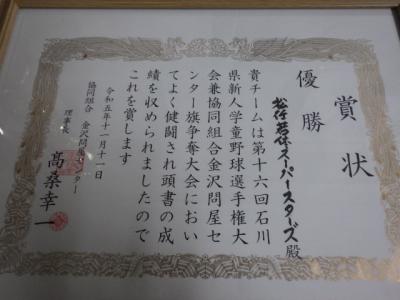 賞状
優勝
松任若宮スーパースターズ殿
貴チームは第十六回石川
県新人学童野球選手権大
会兼協同組合金沢問屋セ
ンター旗争奪大会におい
てよく健闘され頭書の成
績を収められましたので
これを賞します
令和五年十一月十一日
協同組合 金沢問屋センター
理事長 髙桑幸一